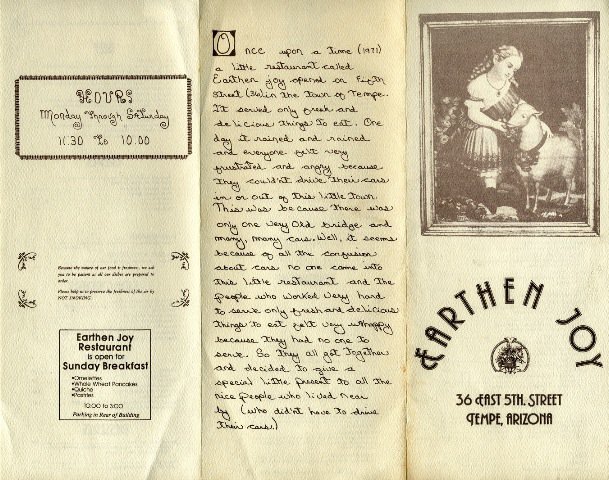 HOURS
Monday Through Saturday
11.30 To 10.00
Because the nature of our food is freshness, we ask
you to be patient as all our dishes are prepared to
order.
Please help us to preserve the freshness of the air by
NOT SMOKING.
Earthen Joy
Restaurant
is open for
Sunday Breakfast
•Omelettes
•Whole Wheat Pancakes
•Quiche
•Pastries
10:00 to 3:00
Parking in Rear of Building
Once upon a time (1971)
a little restaurant called
Earthen Joy opened on Fifth
Street (36) in the Town of Tempe.
It served only fresh and
delicious things to eat. One
day it rained and rained
and everyone felt very
frustrated and angry because
they couldn't drive their cars
in or out of this little town.
This was because there was
only one very old bridge and
many, many cars. Well, it seems
because of all the confusion
about cars no one came into
this little restaurant and the
people who worked very hard
to serve only fresh and delicious
things to eat felt very unhappy
because they had no one to
serve. So they all got together
and decided to give a
special little present to all the
nice people who lived near
by (who didn't have to drive
their cars.)
EARTHEN JOY
36 EAST 5TH. STREET
TEMPE, ARIZONA